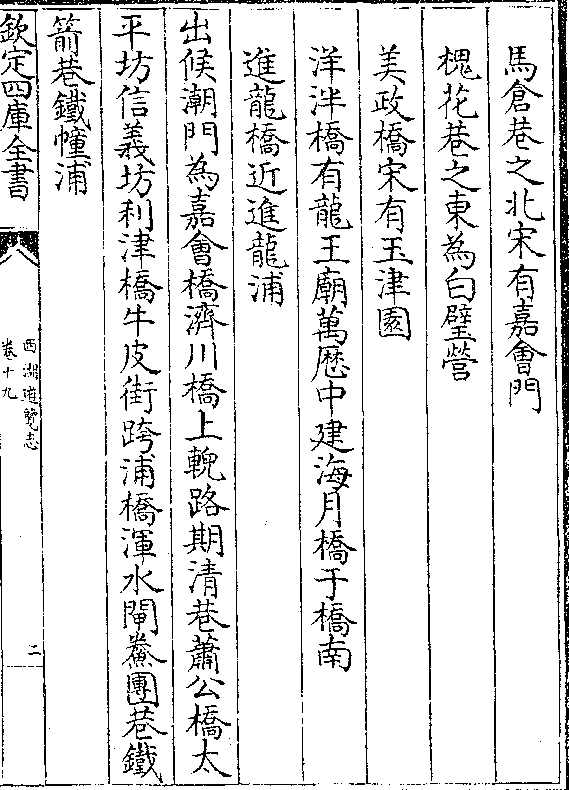 馬倉巷之北宋有嘉會門
槐花巷之東為白璧營
美政橋宋有玉津園
洋泮橋有龍王廟萬厯中建海月橋于橋南
進龍橋近進龍浦
出候潮門為嘉會橋濟川橋上輗路期清巷蕭公橋太
平坊信義坊利津橋牛皮街跨浦橋渾水閘鮝團巷鐵
箭巷鐵幢浦
欽定四庫全書
西湖遊覽志
卷十九
二